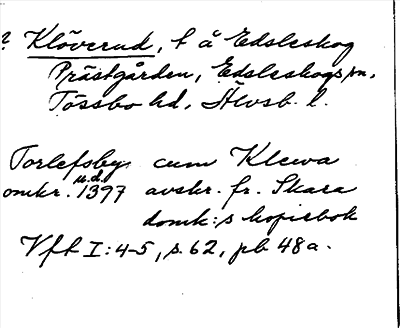 ? Klöverud, t å Edsleskog
Prästgården, Edsleskogs sn,
Tössbo hd, Älvsb. l.
Torlefsby cum Klewa
u.d.
omkr. 1397 avskr. fr. Skara
domk:s kopiebok
Vft I:4-5, s. 62, pb 48a.